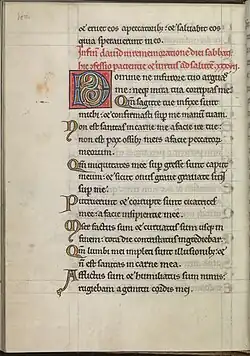 et eruet eos a peccatorib; et saluabit eos
quia sperauerunt in eo.
In finem dauid in rememoratione diei sabbati
ad salutem xxxvii
Domine ne in furore tuo arguas
me: neq; in ira tua corripias me.
Qm sagitte tue infixe sunt
michi: et confirmasti sup me manum tuam.
Non est sanitas in carne mea a facie ire tue:
non est pax ossib; meis a facie peccatorum
meorum.
Qm iniquitates mee sup gresse sunt caput
meum: et sicut onus graue grauate
sup me.
Putruerunt et corrupte sunt cicatrices
mee: a facie insipientie mee.
Miser factus sum et curuatus sum usq; in
finem: tota die contristatus ingrediebar.
Qm lumbi mei impleti sunt illusionib; et
n est sanitas in carne mea.
Afflictus sum et humiliatus sum nimis:
rugiebam a gemitu cordis mei.